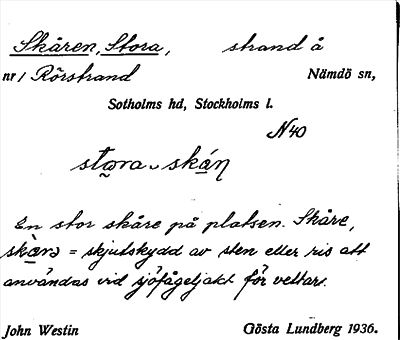 Skåren, Stora, strand å
nr 1 Rörstrand Nämdö sn,
Sotholms hd, Stockholms l.
N 40
stǫra skán
En stor skåre på platsen. Skåre,
skàrə = skjutskydd av sten eller ris att
användas vid sjöfågeljakt för vettar.
John Westin Gösta Lundberg 1936.